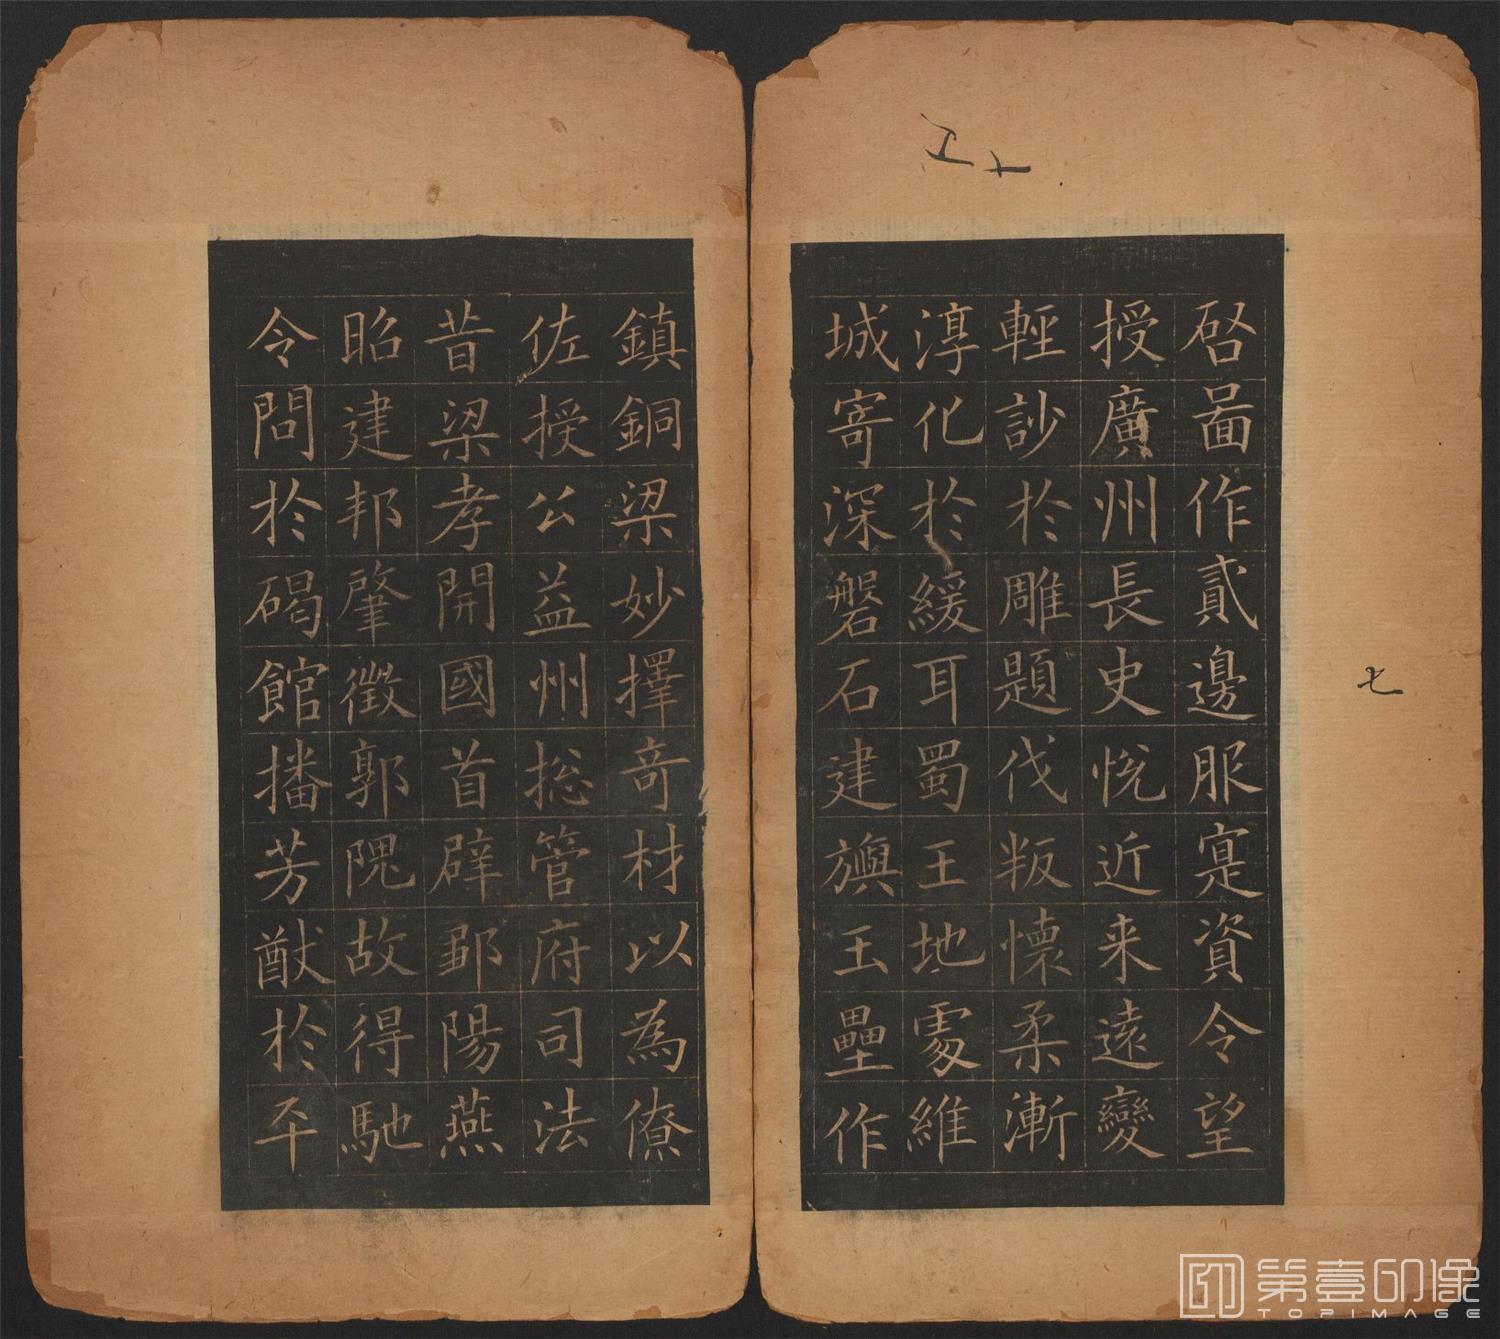 启啚作貳邊服寔資令望
授廣州長史悅近来遠變
輕訬於雕題伐叛懷柔漸
淳化於緩耳蜀王地處維
城寄深磐石建旟玉壘作
鎮銅梁妙擇奇材以為僚
佐授公益州揔管府司法
昔梁孝開國首辟鄒陽燕
昭建邦肇徵郭隗故得馳
令問於碣館播芳猷於平
七
第壹印像
TOPIMAGE